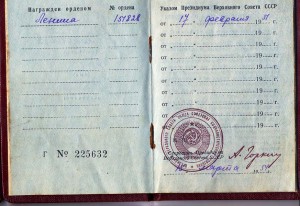 Награжден орденом № ордена
Ленина 151828
Г № 225632
Указом Президиума Верховного Совета СССР
от 17 февраля 19
от 19
от 19
от 19
от 19
от 19
от 19
от 19
от 19
Секретарь Президиума
Верховного Совета СССР
А. Горкин
марта 19